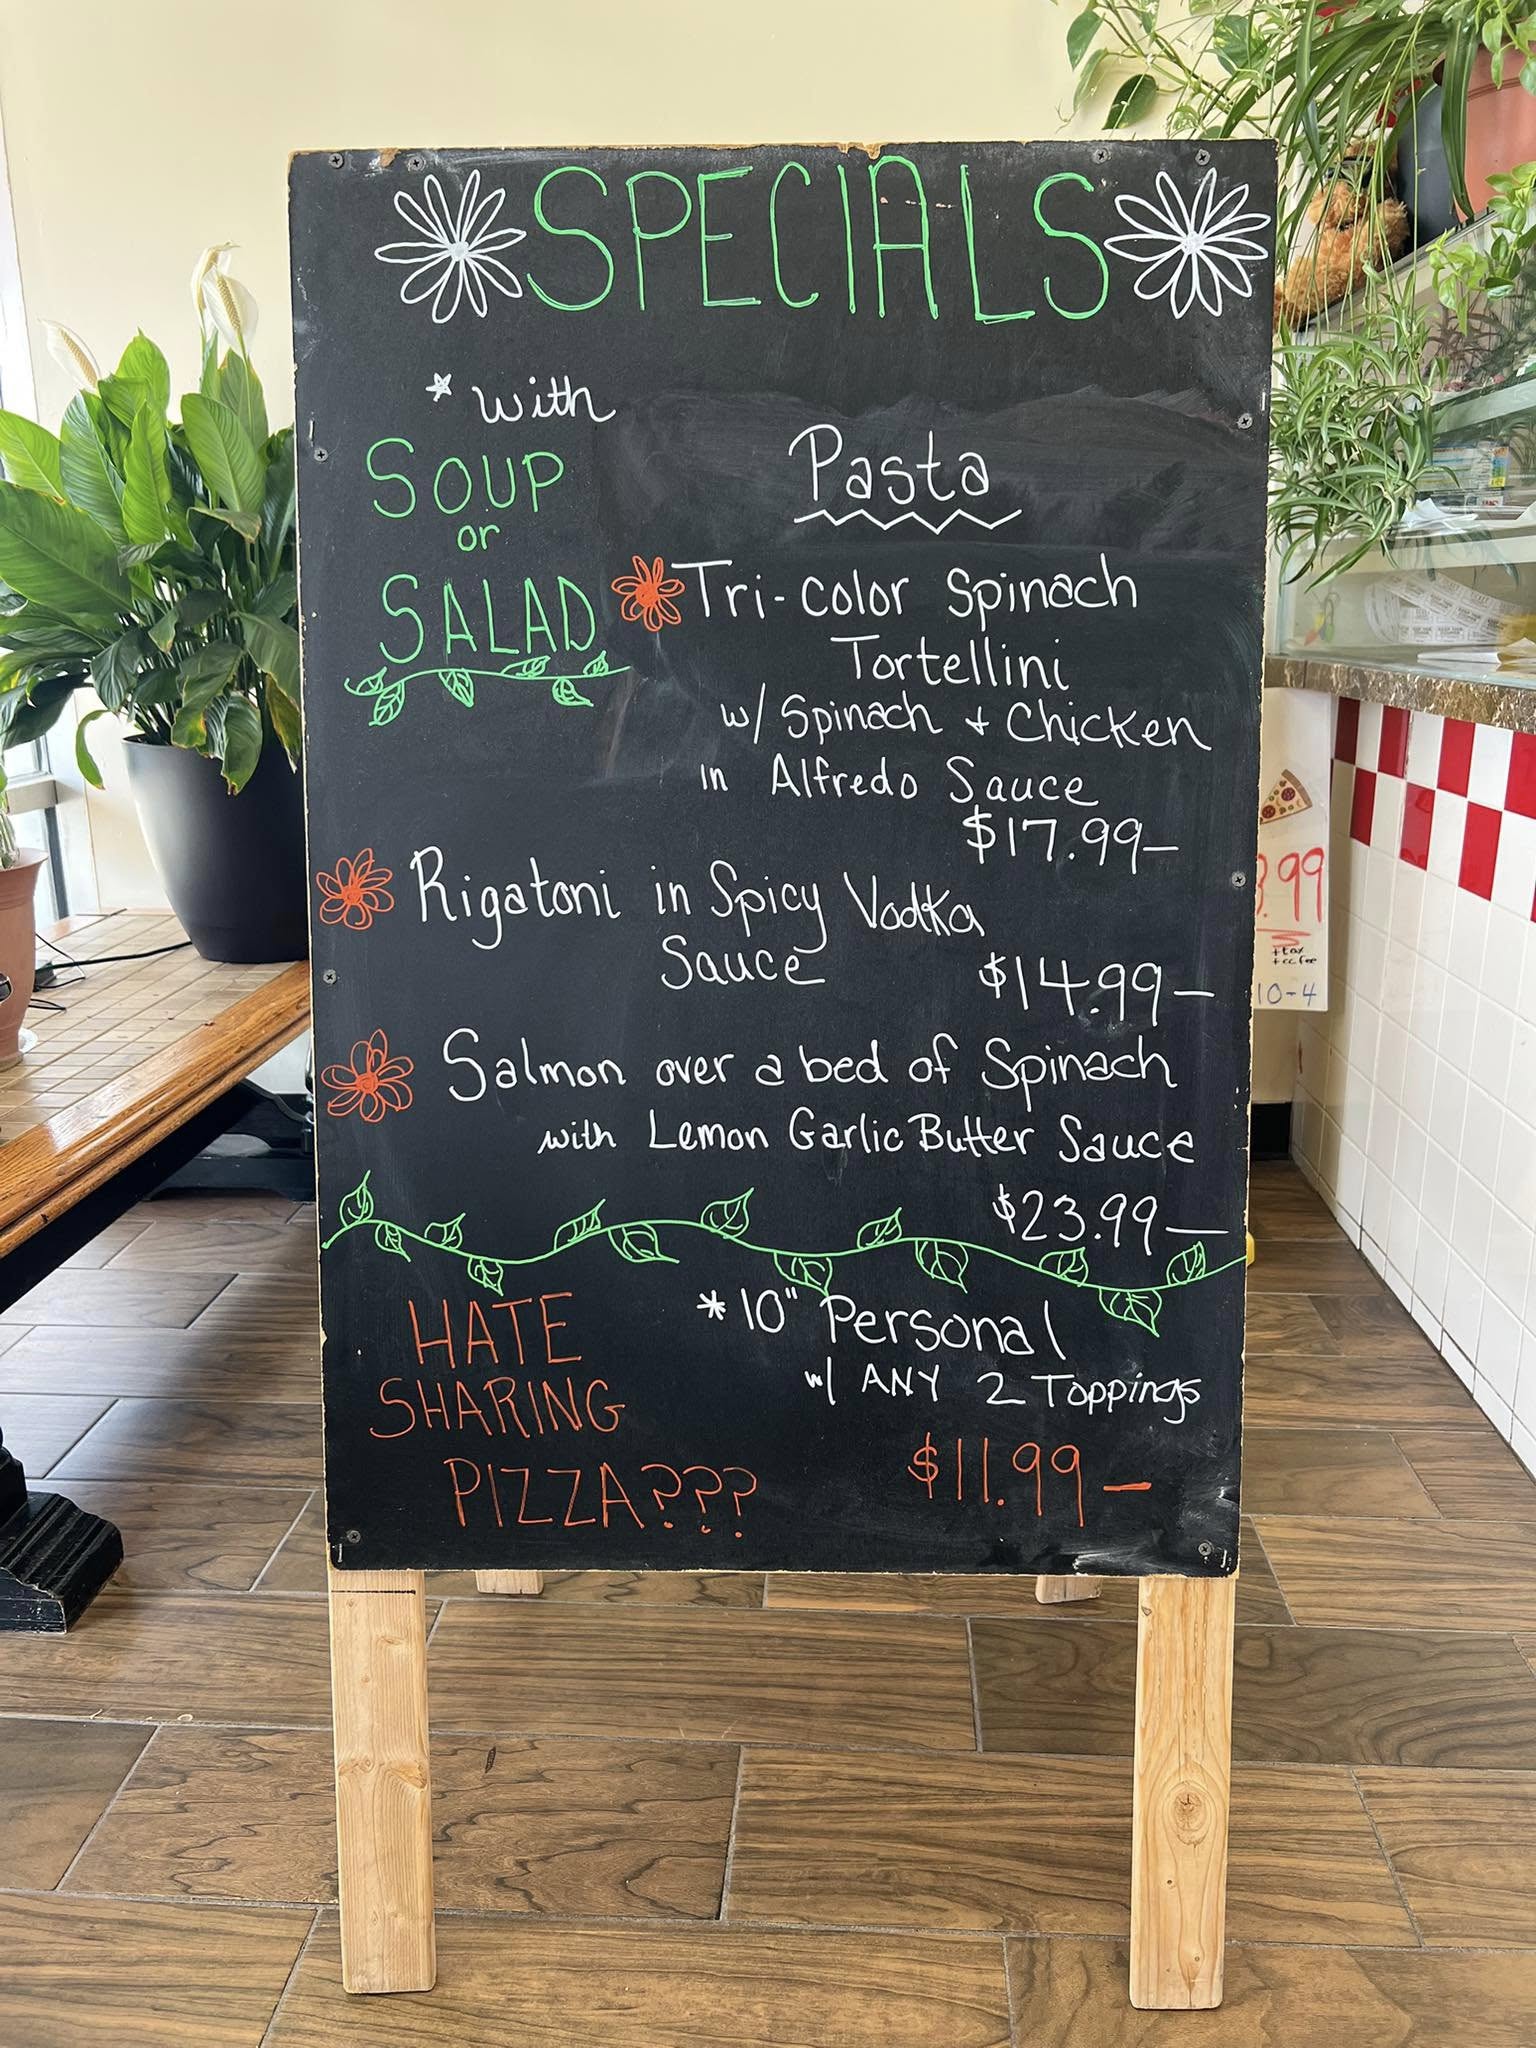 SPECIALS
* with
SOUP
or
SALAD
Pasta
Tri-color Spinach
Tortellini
w/ Spinach + Chicken
in Alfredo Sauce
$17.99—
Rigatoni in Spicy Vodka
Sauce
$14.99—
Salmon over a bed of Spinach
with Lemon Garlic Butter Sauce
$23.99—
HATE
SHARING
PIZZA???
*10" Personal
w/ ANY 2 Toppings
$11.99—
.99
+tax
+cc fee
10-4